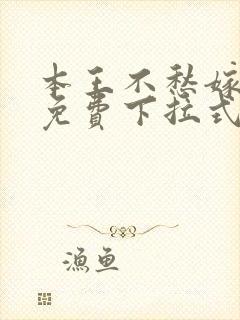 本王不愁嫁
免费下拉式
渔鱼